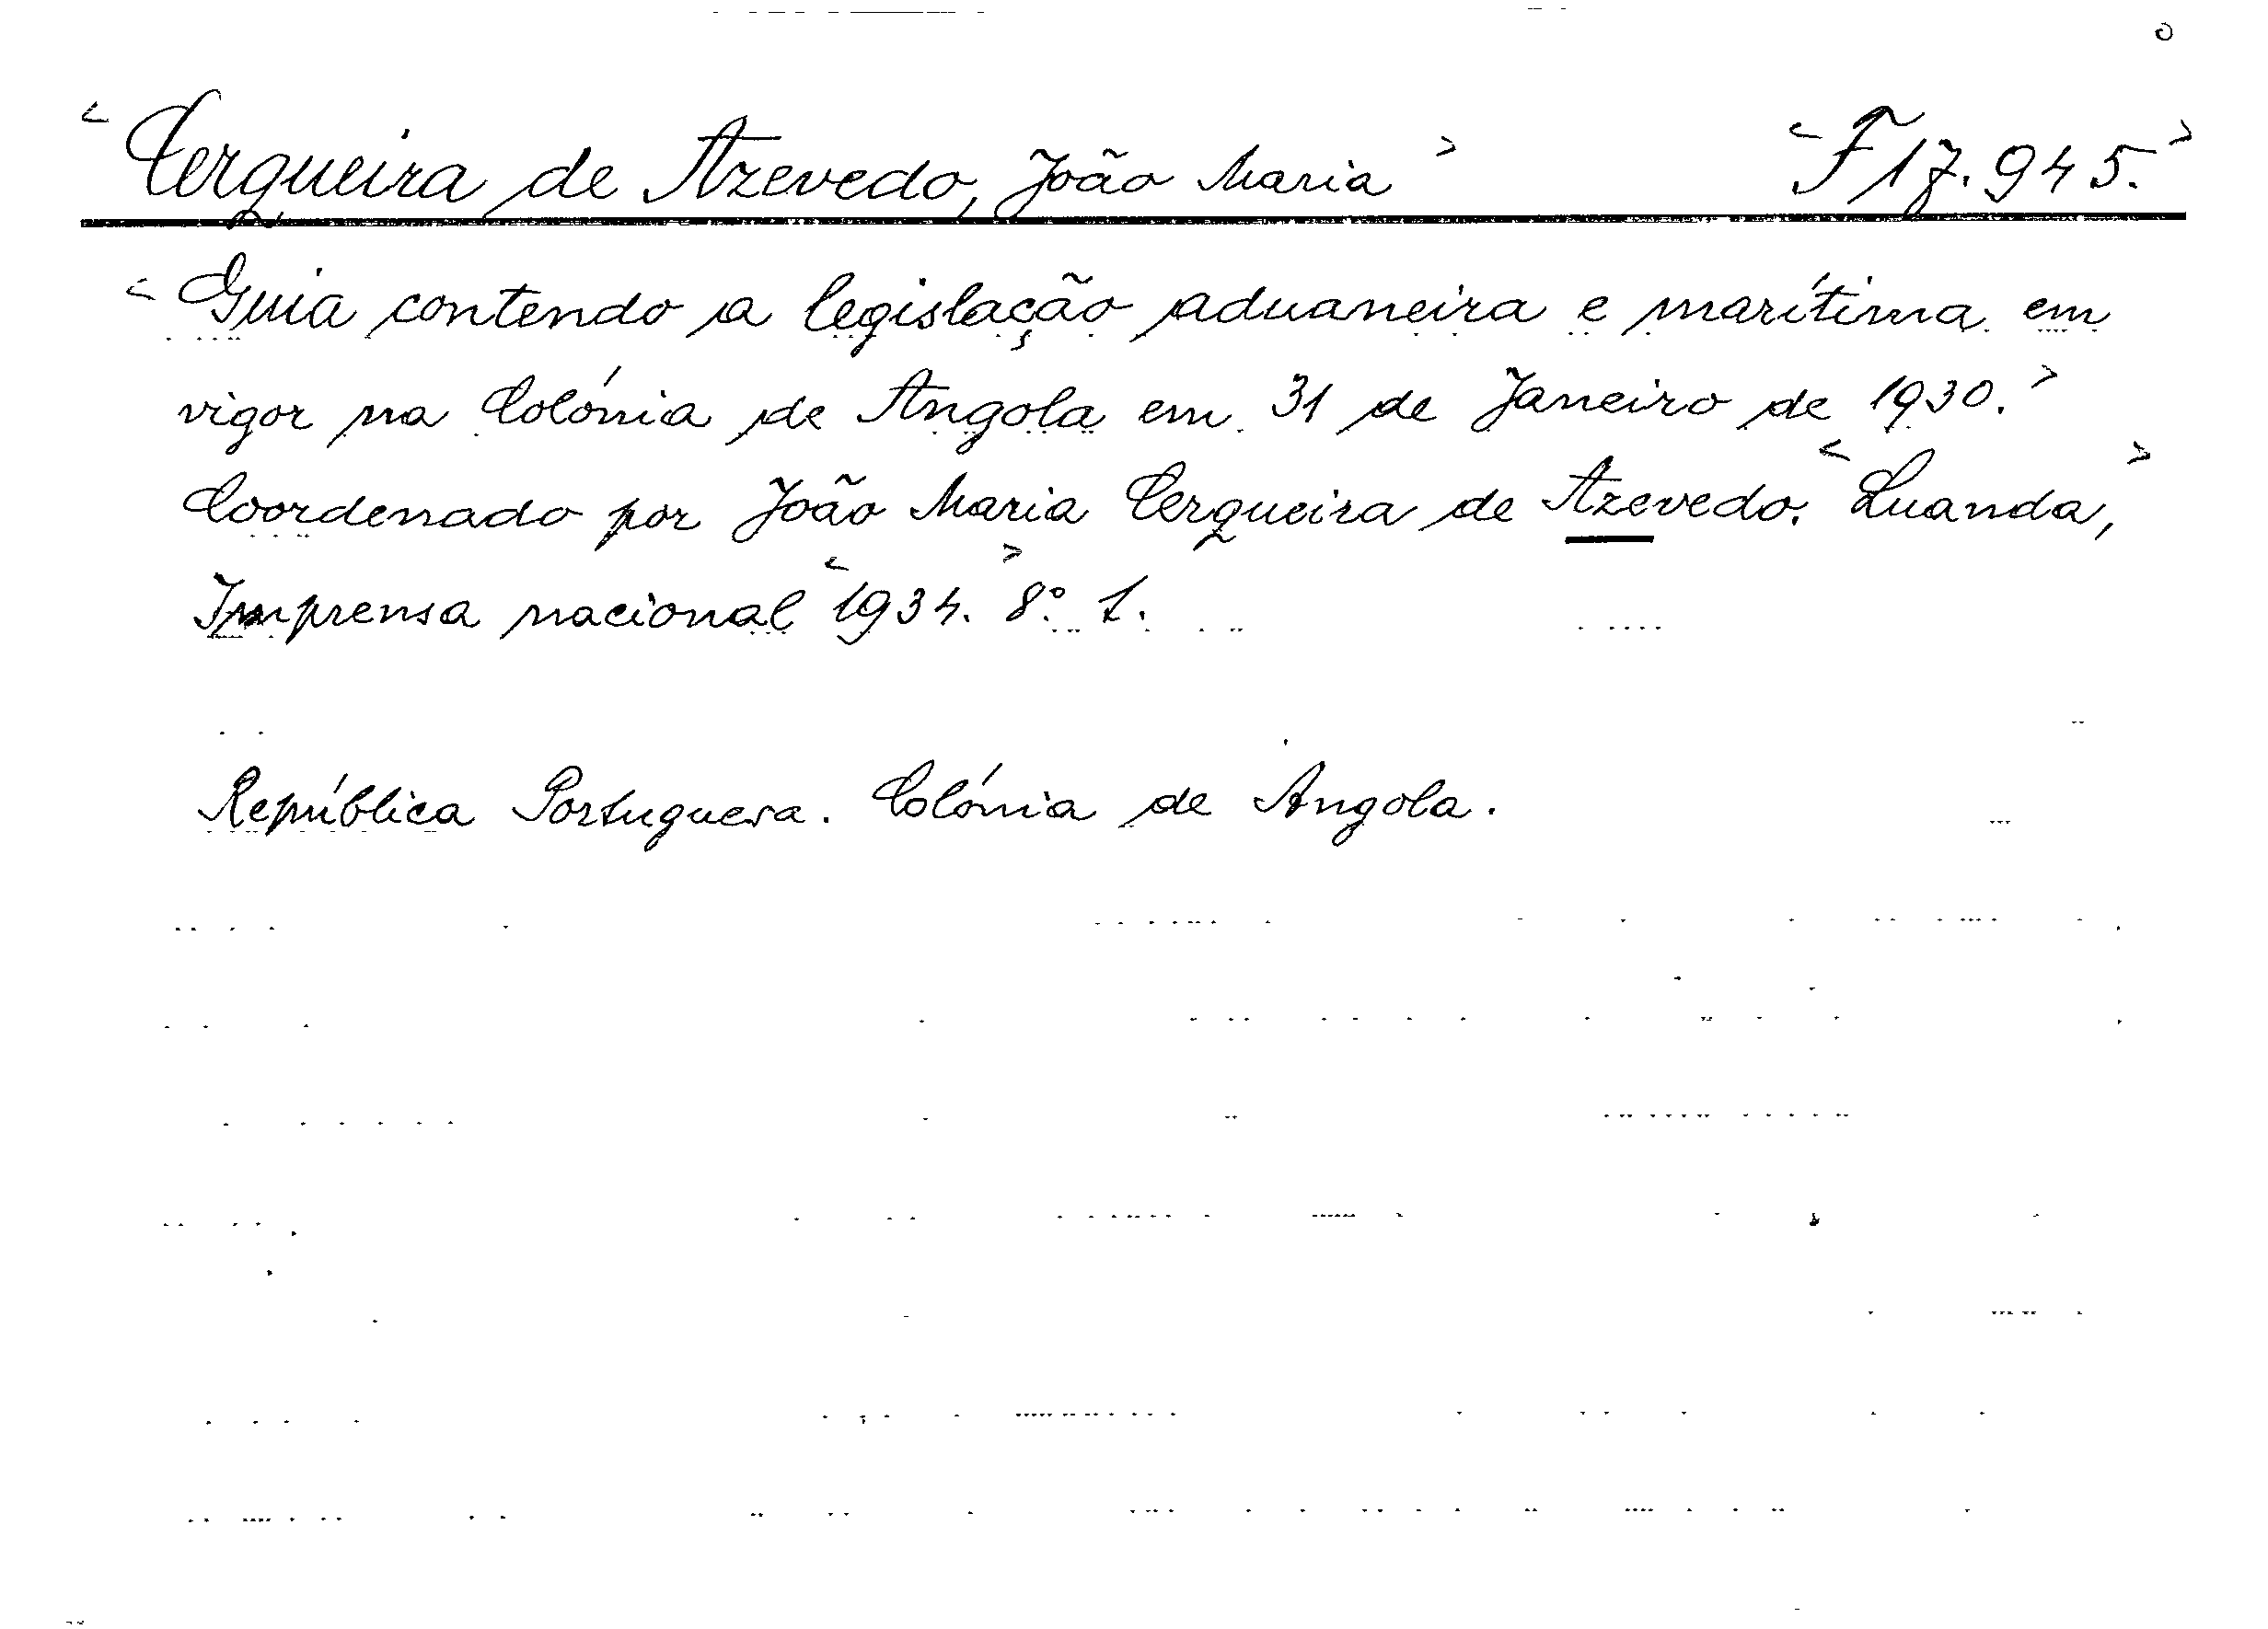 <Cerqueira de Azevedo, João Maria> <F 17.945.>
<Guia contendo a legislação aduaneira e marítima em
vigor na Colónia de Angola em 31 de Janeiro de 1930.>
Coordenado por João Maria Cerqueira de Azevedo. <Luanda,>
Imprensa nacional <1934.> 8.° 1.
República Portuguesa. Colónia de Angola.